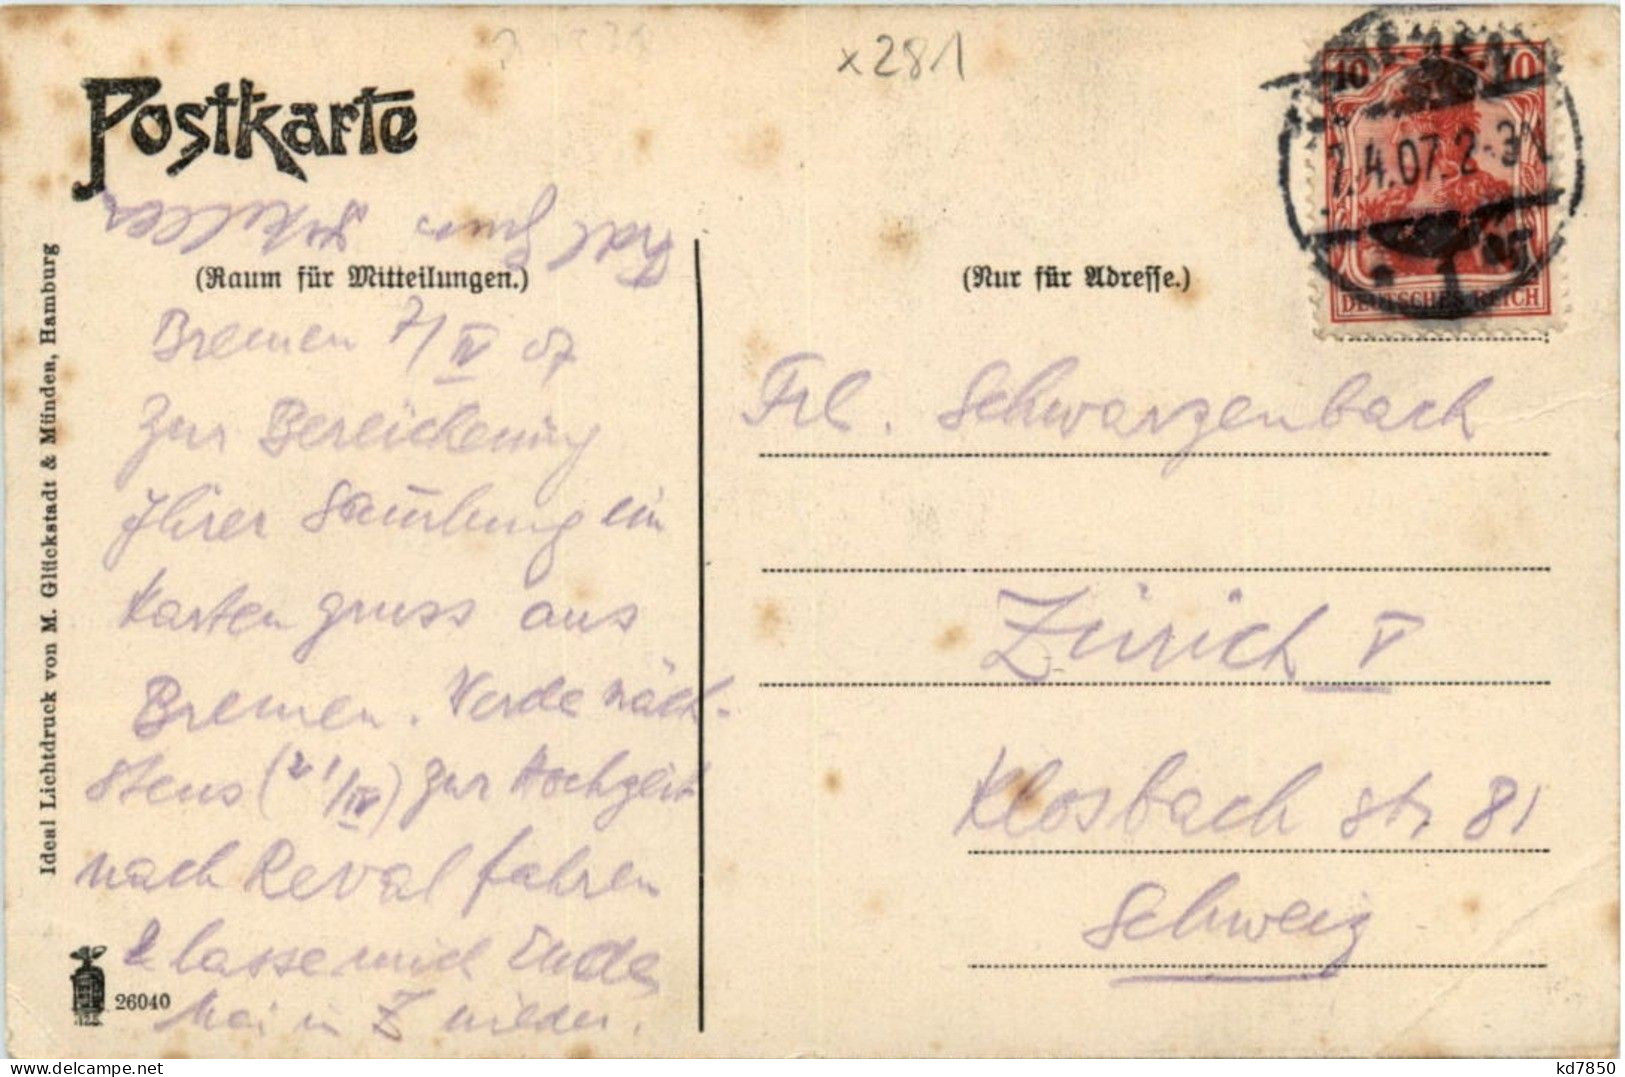 x281
Postkarte
10 10
7.4.07.2-3N
DEUTSCHES REICH
(Raum für Mitteilungen.)
(Nur für Adresse.)
Bremen 7/IV 07
Zur Bereicherung
Ihrer Sammlung ein
Kartengruss aus
Bremen. Werde näch-
stens (21/IV) zur Hochzeit
nach Reval fahren
& lasse mich Ende
Mai in Z nieder.
Frl. Schwarzenbach
Zürich V
Klosbachstr. 81
Schweiz
Ideal Lichtdruck von M. Glückstadt & Münden, Hamburg
26040
kd7850